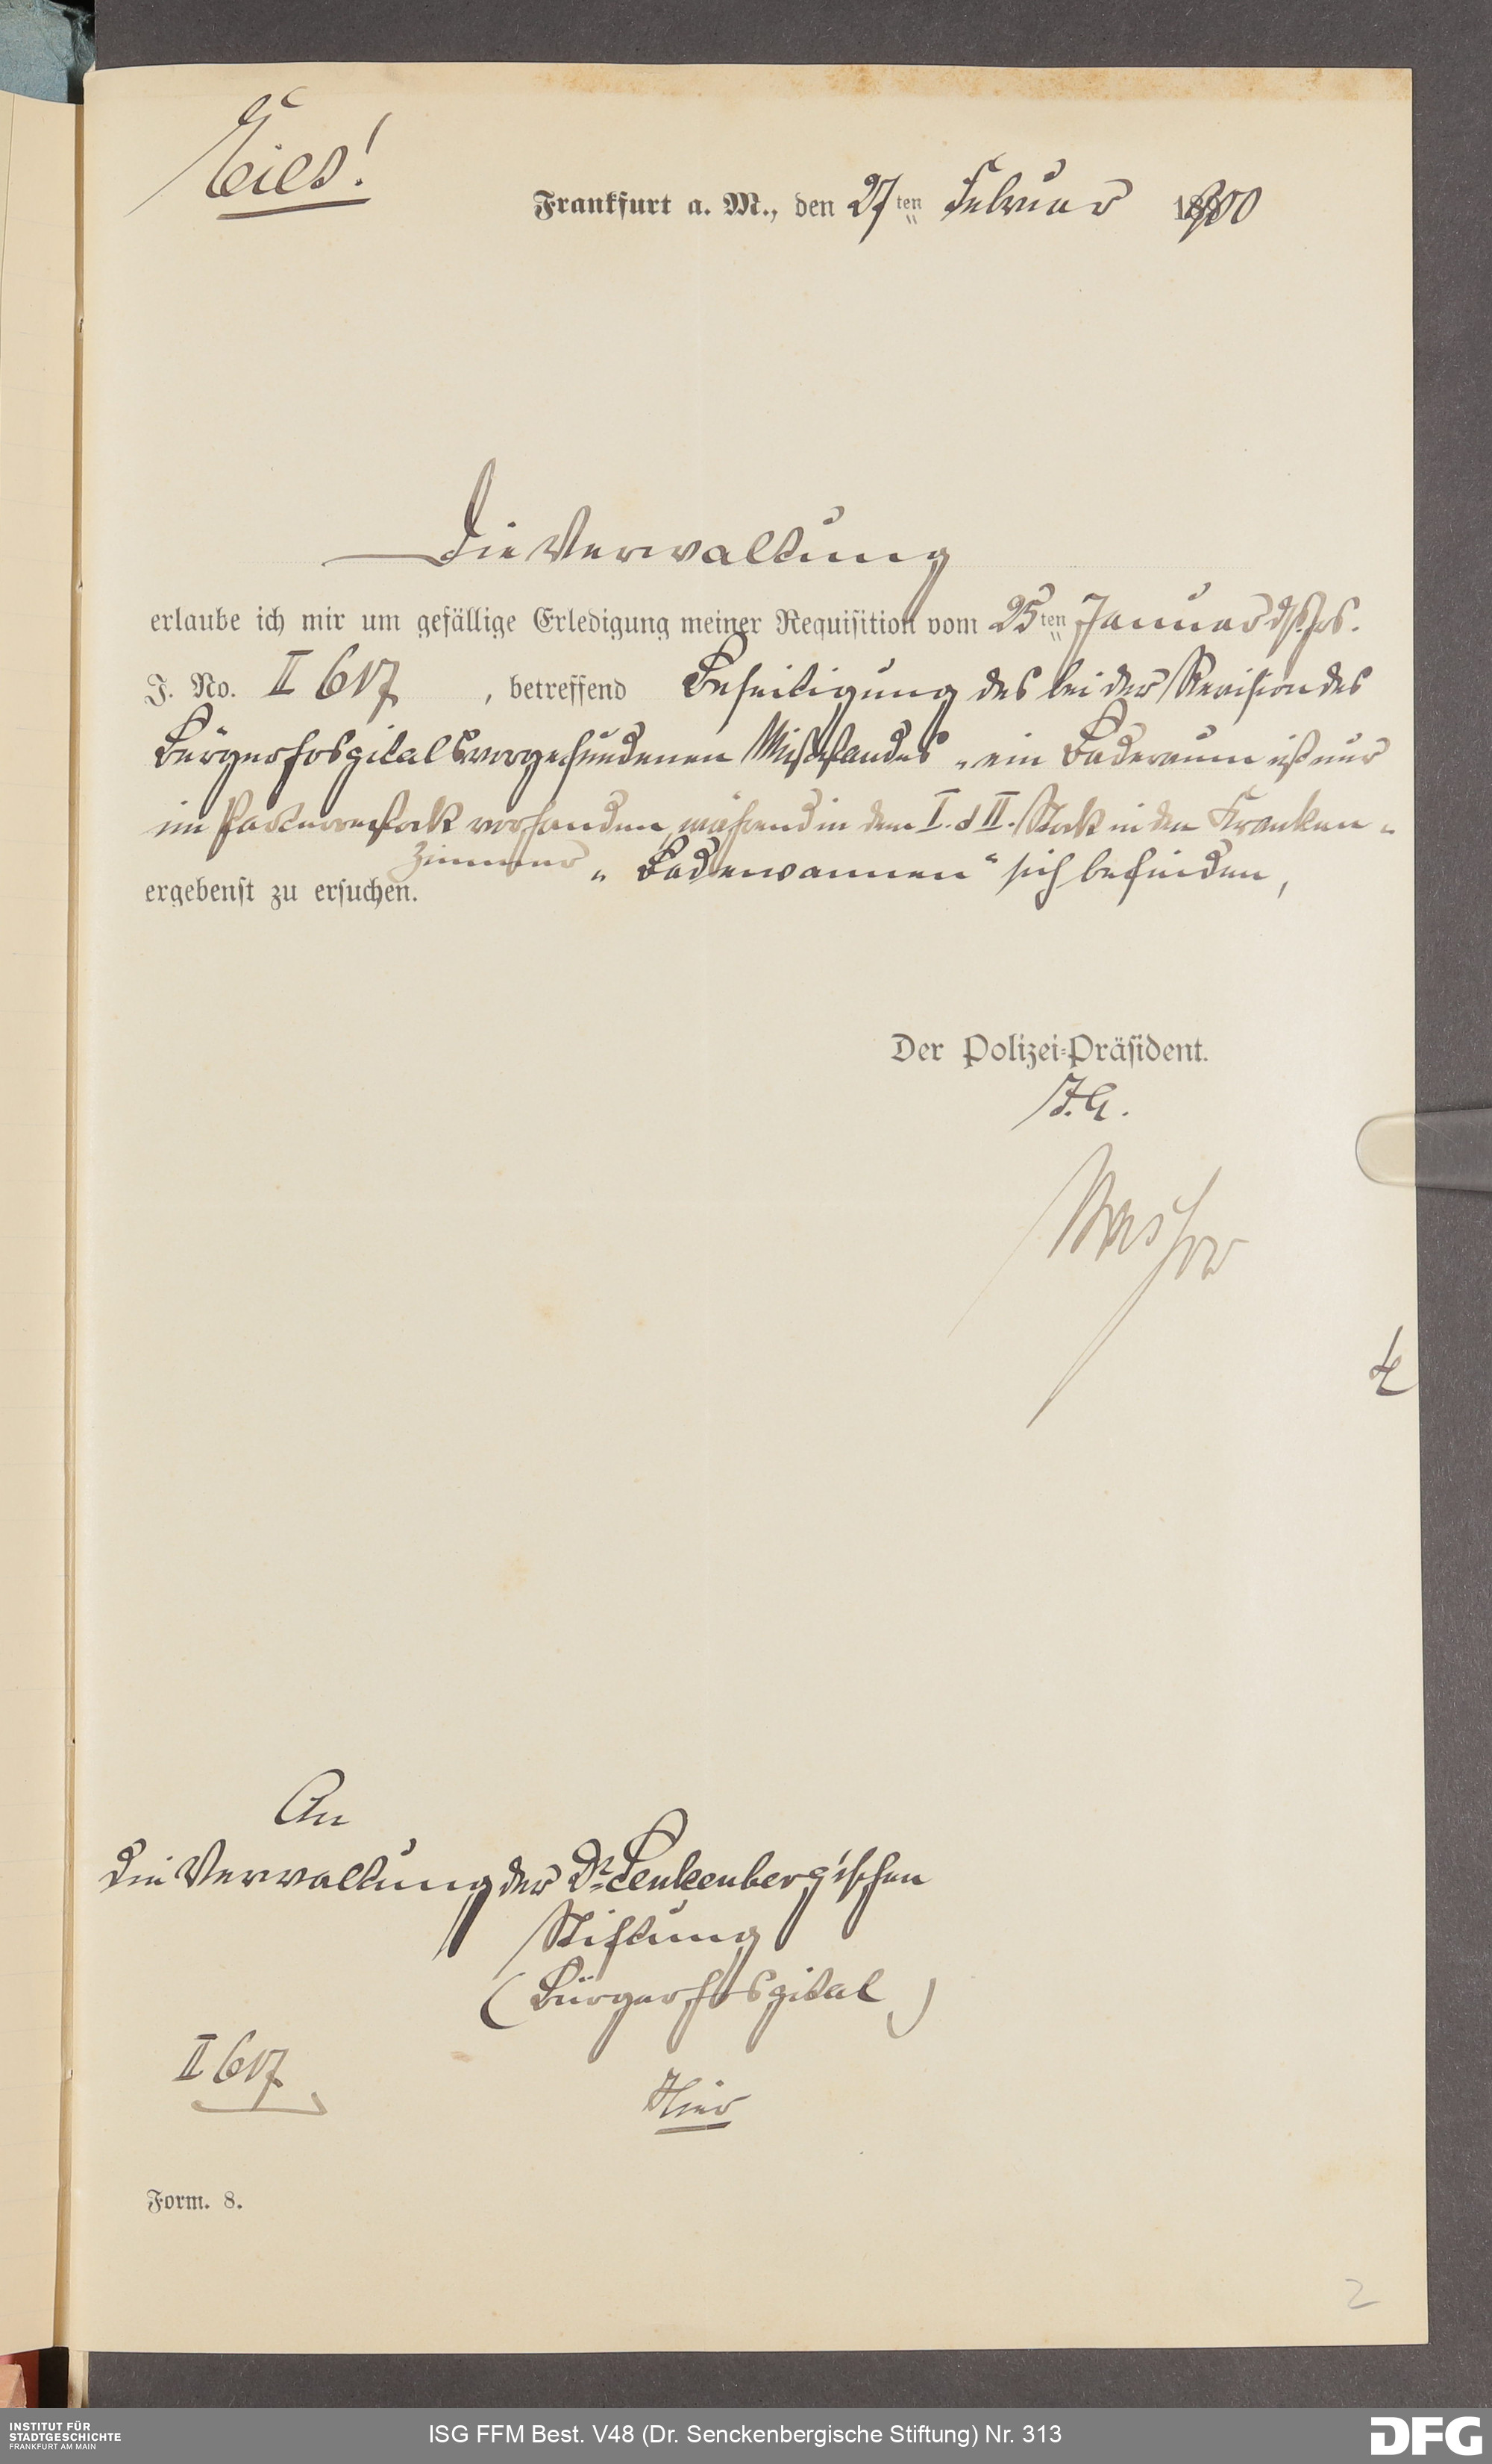 Eilt!
Frankfurt a. M., den 27ten Februar 1900
Die Verwaltung
erlaube ich mir um gefällige Erledigung meiner Requisition vom 25ten Januar ds. Jrs.
J. No. II 617, betreffend Beseitigung des bei der Revision des
Bürgerhospitals vorgefundenen Mißstandes „ein Baderaum ist nur
im Parterrestock vorhanden, während in dem I. & II. Stock in den Kranken-
zimmer „Badewannen“ sich befinden,
ergebenst zu ersuchen.
Der Polizei-Präsident.
J. A.
An
die Verwaltung der Dr. Senkenberg'ischen
Stiftung
(Bürgerhospital)
II 617
Hier
Form. 8.
2
INSTITUT FÜR
STADTGESCHICHTE
FRANKFURT AM MAIN
ISG FFM Best. V48 (Dr. Senckenbergische Stiftung) Nr. 313
DFG